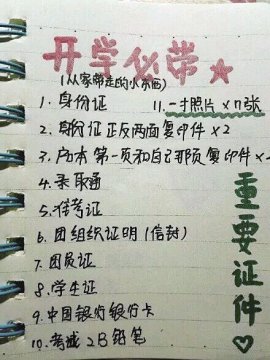 开学必带
(从家带走的小东西)
1. 身份证
11. 一寸照片×n张
2. 身份证正反两面复印件×2
3. 户口本第一页和自己那页复印件×
4. 录取通
5. 准考证
6. 团组织证明(信封)
7. 团员证
8. 学生证
9. 中国银行银行卡
10. 考试2B铅笔
重要证件